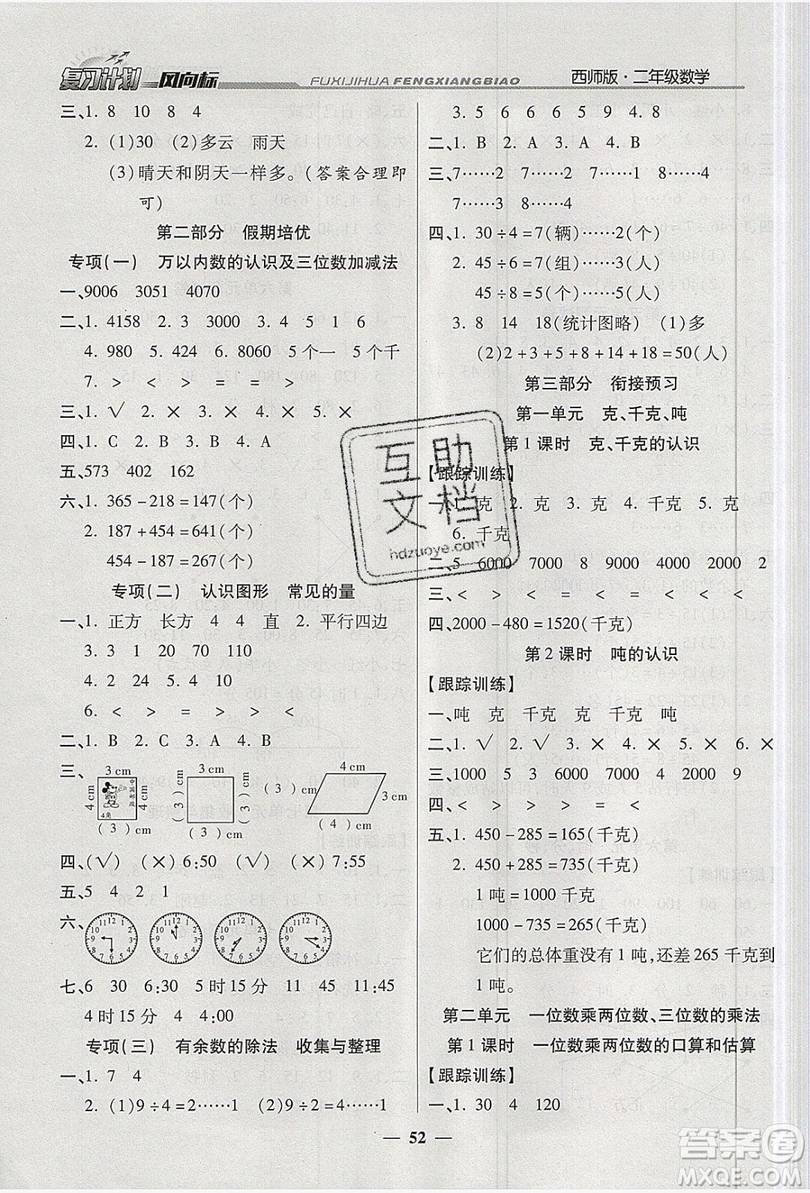 复习计划 风向标 FUXIJIHUA FENGXIANGBIAO 西师版·二年级数学
三、1. 8 10 8 4
2. (1)30 (2)多云 雨天
(3)晴天和阴天一样多。(答案合理即
可)
第二部分 假期培优
专项(一) 万以内数的认识及三位数加减法
一、9006 3051 4070
二、1. 4158 2. 3 3000 3. 4 5 1 6
4. 980 5. 424 6. 8060 5个一 5个千
7. > > = < >
三、1. √ 2. × 3. × 4. × 5. ×
四、1. C 2. B 3. B 4. A
五、573 402 162
六、1. 365-218=147(个)
2. 187+454=641(个)
454-187=267(个)
专项(二) 认识图形 常见的量
一、1. 正方 长方 4 4 直 2. 平行四边
3. 2 1 3 20 70 110
4. 1 20 5. 24 1
6. < > = > > <
二、1. B 2. C 3. A 4. B
三、3 cm 3 cm 4 cm 4 cm 中国邮政 4角 (3)cm (3)cm (3)cm (3)cm 4 cm 3 cm (3)cm (4)cm
四、(√) (×) 6:50 (√) (×) 7:55
五、5 4 2 1
六、
七、6 30 6:30 5时15分 11 45 11:45
4时15分 4 4:00
专项(三) 有余数的除法 收集与整理
一、1. 7 4
2. (1)9÷4=2……1 (2)9÷2=4……1
3. 5 6 6 6 5 9 4. 5 8
二、1. B 2. A 3. A 4. B
三、7……2 7……1 8……1 8……4
7……6 9……4 7……8 8……4
四、1. 30÷4=7(辆)……2(个)
2. 45÷6=7(组)……3(个)
45÷8=5(组)……5(个)
3. 8 14 18(统计图略) (1)多
(2)2+3+5+8+14+18=50(人)
第三部分 衔接预习
第一单元 克、千克、吨
第1课时 克、千克的认识
【跟踪训练】
一、1. 克 2. 克 3. 克 4. 千克 5. 克
6. 千克
二、5 6000 7000 8 9000 4000 2000 2
三、< > < = = < < <
四、2000-480=1520(千克)
第2课时 吨的认识
【跟踪训练】
一、吨 克 千克 克 千克 吨
二、1. √ 2. √ 3. × 4. × 5. × 6. ×
三、1000 5 3 6000 4000 7000 9 8
四、< > > = = < = <
五、1. 450-285=165(千克)
2. 450+285=735(千克)
1吨=1000千克
1000-735=265(千克)
它们的总体重没有1吨,还差265千克到
1吨。
第二单元 一位数乘两位数、三位数的乘法
第1课时 一位数乘两位数的口算和估算
【跟踪训练】
一、1. 30 4 120
52
互助
文档
hdzuoye.com
答案圈
MXQE.COM